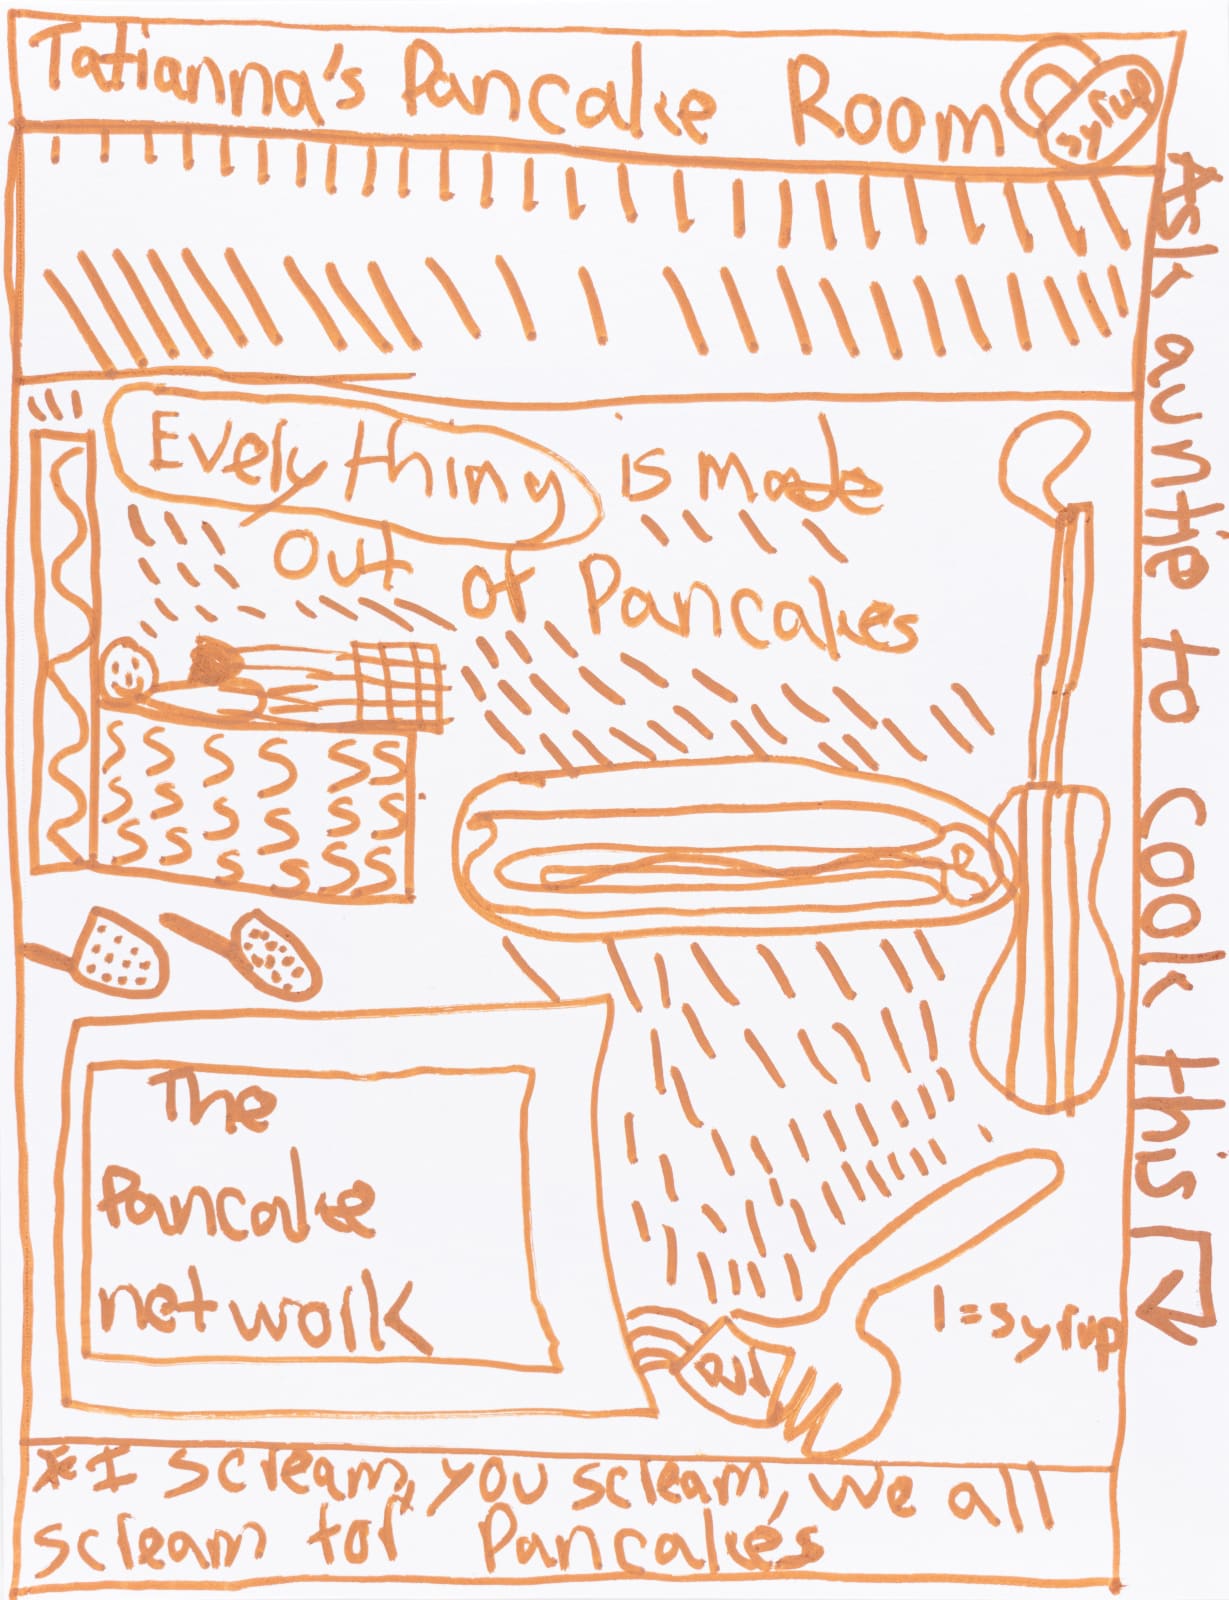 Tatianna's Pancake Room
syrup
Ask auntie to cook this
Everything is made
out of Pancakes
S S S S SS
S S S S SS
S S S S SS
The
Pancake
network
I = syrup
* I scream, you scream, we all
scream for Pancakes